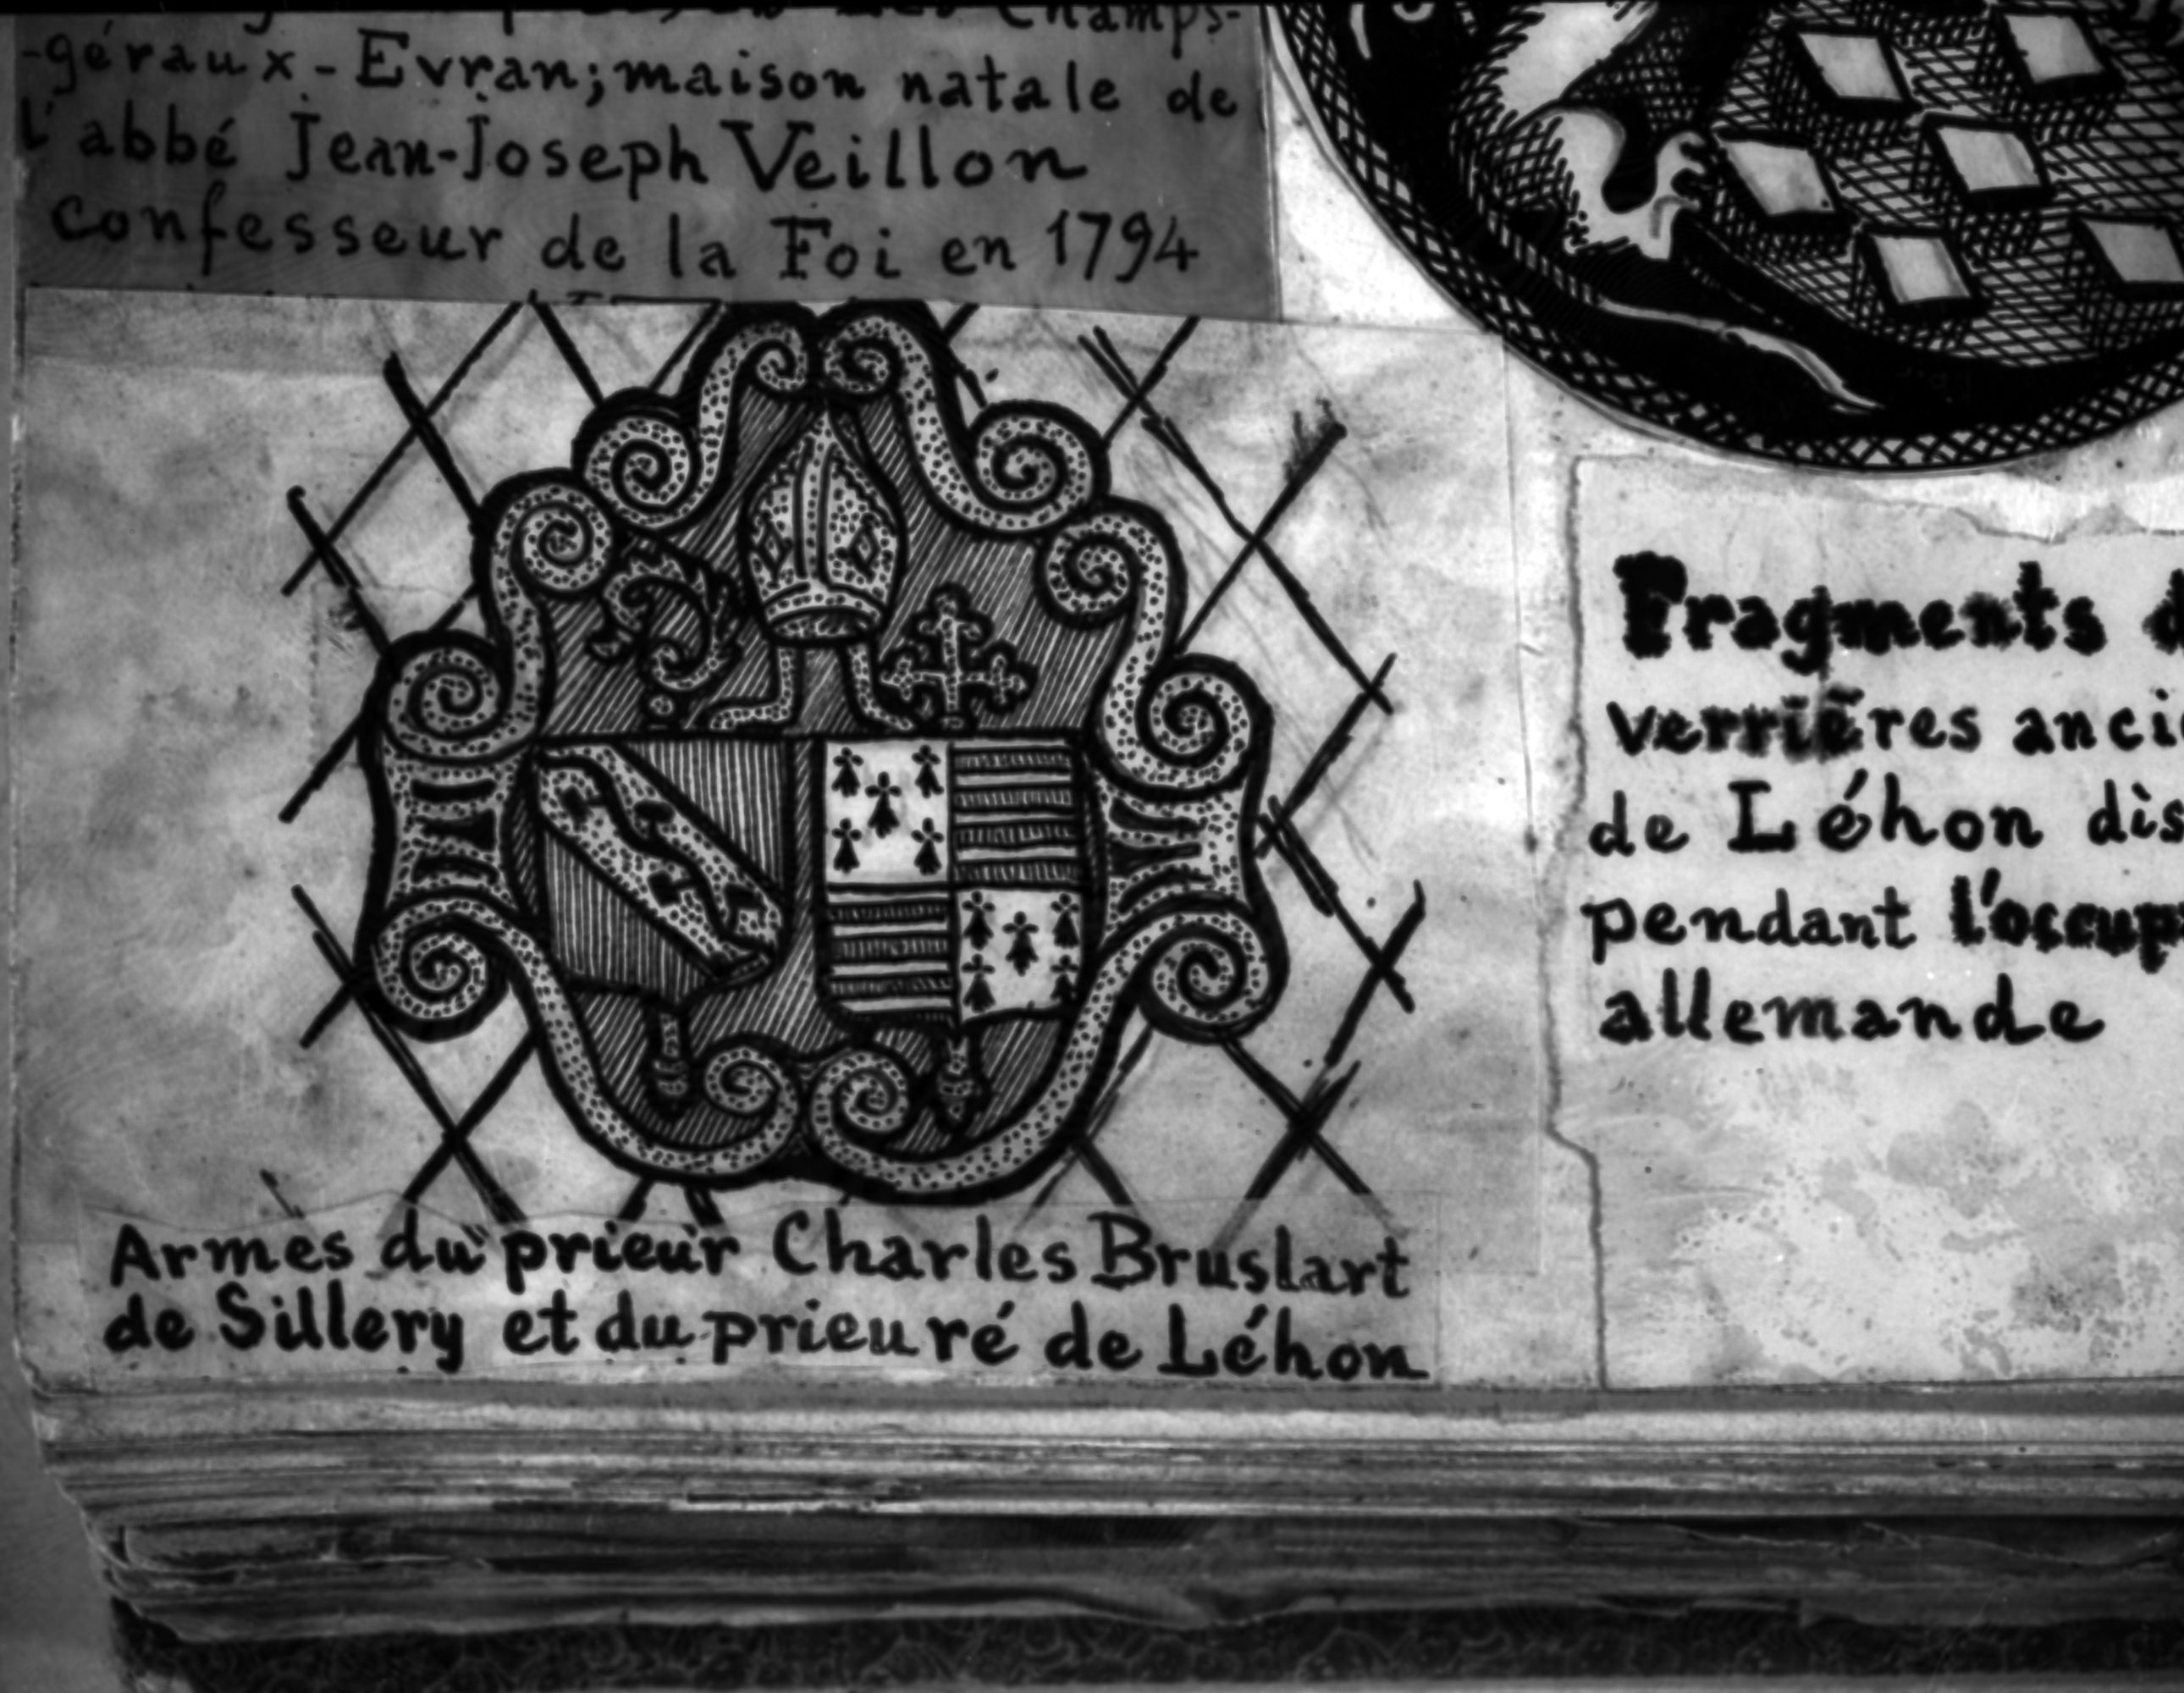 Champs-
-géraux - Evran; maison natale de
l'abbé Jean-Joseph Veillon
confesseur de la Foi en 1794
Armes du prieur Charles Bruslart
de Sillery et du prieuré de Léhon
Fragments
verrières anci
de Léhon dis
pendant l'occup
allemande